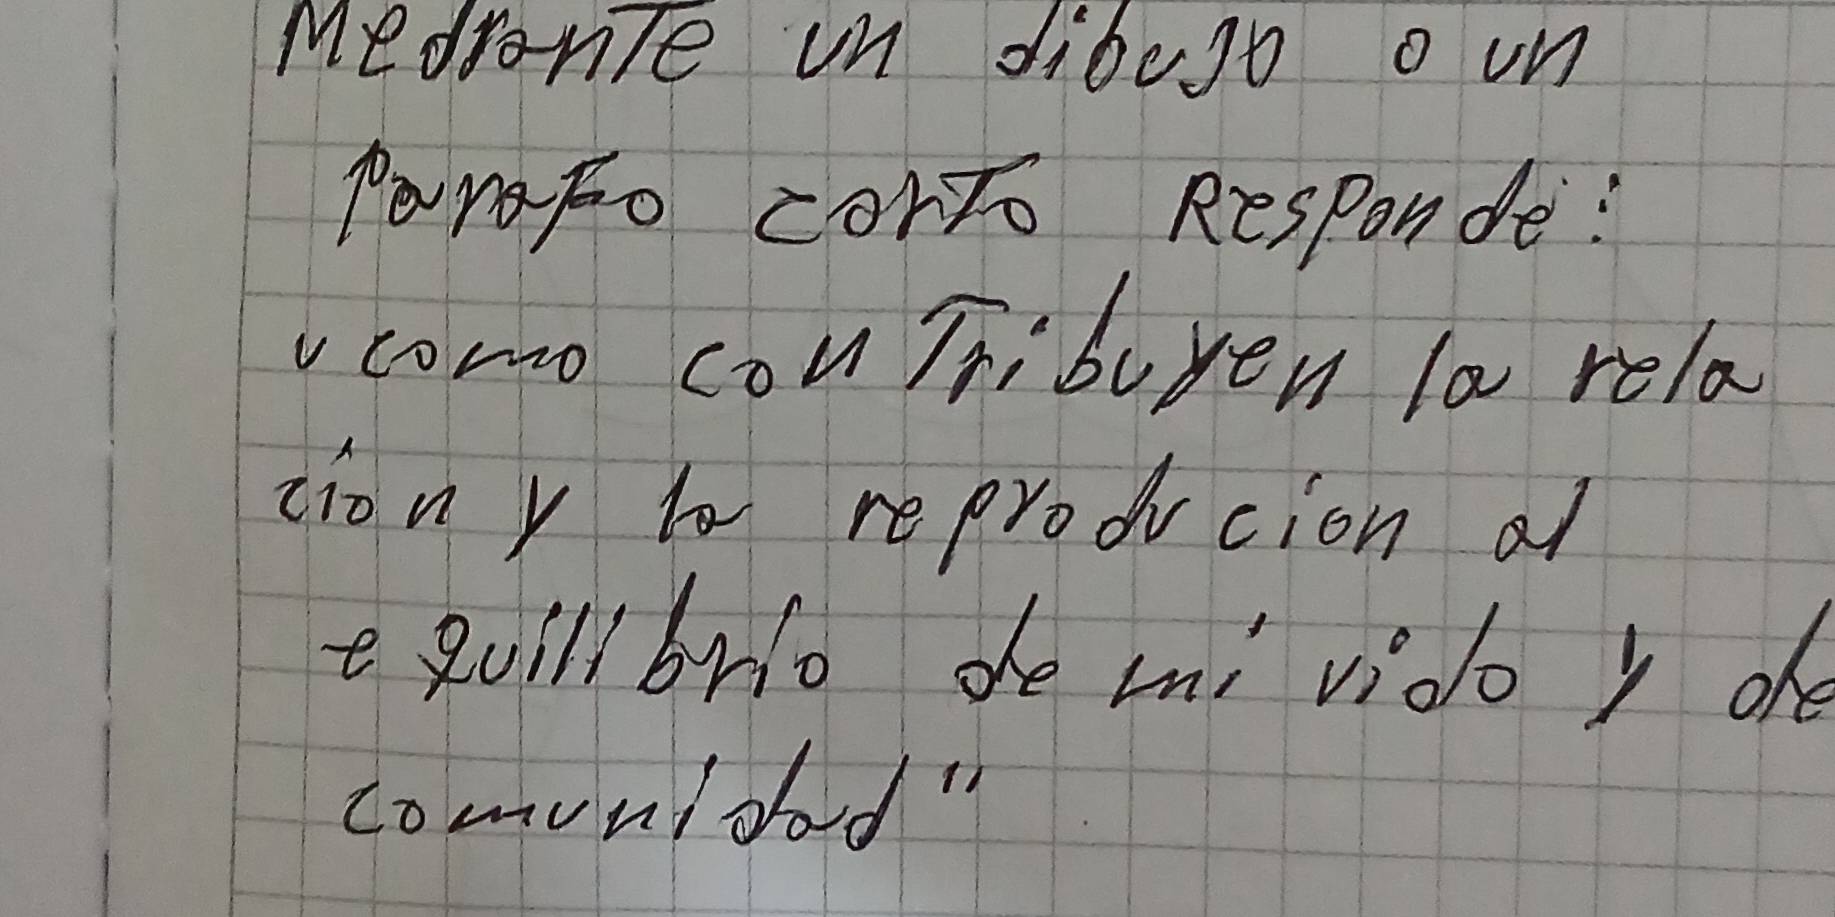 Mediante un dibujo o un
Parrafo corto Responde:
"como contribuyen la rela
ción y la reproducion al
equilibrio de mi vida y de
comunidad"